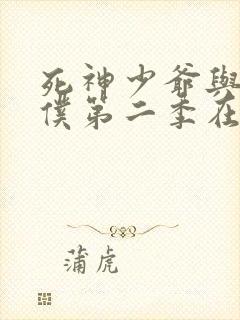 死神少爺與
僕第二季在
蒲虎